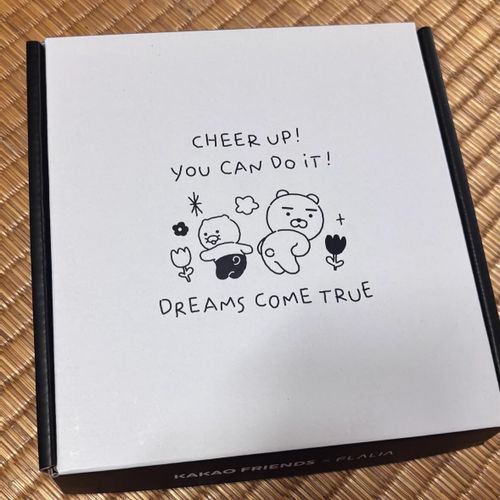 CHEER UP!
YOU CAN DO iT!
DREAMS COME TRUE
KAKAO FRIENDS × FLALIA